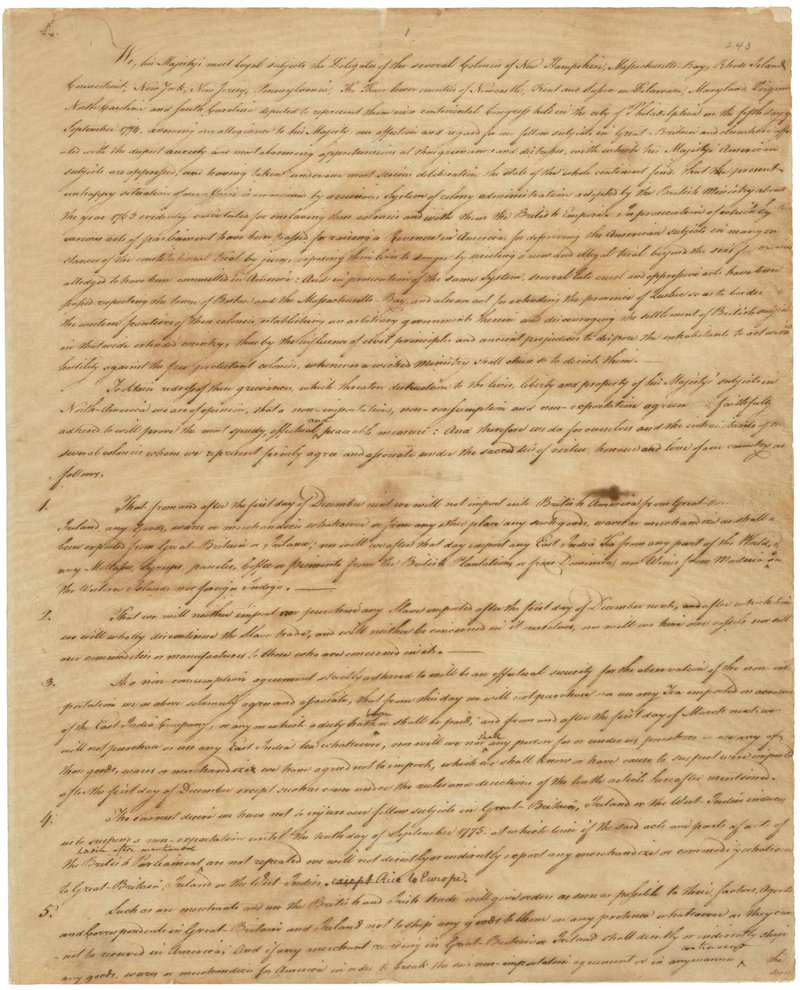 243
We, his Majesty's most loyal subjects the Delegates of the several Colonies of New Hampshire, Massachusetts-Bay, Rhode Island
Connecticut, New York, New Jersey, Pennsylvania, The Three lower counties of Newcastle, Kent and Sussex on Delaware, Maryland, Virginia
North Carolina and South Carolina deputed to represent them in a continental Congress held in the city of Philadelphia on the fifth day of
September 1774, avowing our allegiance to his Majesty our affection and regard for our fellow subjects in Great-Britain and elsewhere affec
ted with the deepest anxiety and most alarming apprehensions at those grievances and distresses, with which his Majesty's American
subjects are oppressed, and having taken under our most serious deliberation the state of the whole continent find, that the present
unhappy situation of our affairs is occasioned by a ruinous System of colony administration adopted by the British Ministry about
the year 1763 evidently calculated for enslaving these colonies and with them the British empire. In prosecution of which System
various acts of parliament have been passed for raising a Revenue in America, for depriving the American subjects in many in
stances of the constitutional trial by jury, exposing their lives to danger by directing a new and illegal trial beyond the seas for crimes
alledged to have been committed in America: And in prosecution of the same System, several late cruel and oppressive acts have been
passed respecting the town of Boston and the Massachusetts-Bay, and also an act for extending the province of Quebec so as to border
the western frontiers of these colonies, establishing an arbitrary government therein and discouraging the settlement of British subjects
in that wide extended country, thus by the influence of civil principles and ancient prejudices to dispose the inhabitants to act with
hostility against the free protestant colonies, whenever a wicked Ministry shall chuse so to direct them.
To obtain redress of these grievances, which threaten destruction to the lives, liberty and property of his Majesty's subjects in
North-America we are of opinion, that a non-importation, non-consumption and non-exportation agreem faithfully
adhered to will prove the most speedy, effectual and peaceable measure: And therefore we do for ourselves and the inhabitants of the
several colonies whom we represent firmly agree and associate under the sacred ties of virtue, honour and love of our country as
follows.
1. That from and after the first day of December next we will not import into British America from Great-
Ireland, any Goods, wares or merchandizes whatsoever or from any other place any such goods, wares or merchandizes as shall
been exported from Great-Britain or Ireland; nor will we after that day import any East India Tea from any part of the World, nor
any Molasses, Syrups, paneles, Coffee or Piemento from the British Plantations or from Dominica, nor Wines from Madeira or
the Western Islands nor foreign Indigo.
2. That we will neither import nor purchase any Slave imported after the first day of December next, and after which time
we will wholly discontinue the Slave trade, and will neither be concerned in it ourselves, nor will we hire our vessels nor sell
our commodities or manufactures to those who are concerned in it.
3. As a non-consumption agreement strictly adhered to will be an effectual security for the observation of the non-im
portation we as above solemnly agree and associate, that from this day we will not purchase or use any Tea imported on account
of the East India Company, or any on which a duty hath been or shall be paid; and from and after the first day of March next we
will not purchase or use any East India tea whatsoever, nor will we nor shall any person for or under us purchase or use any of
those goods, wares or merchandizes we have agreed not to import, which we shall know or have cause to suspect were imported
after the first day of December except such as come under the rules and directions of the tenth article hereafter mentioned.
4. The earnest desire we have not to injure our fellow subjects in Great-Britain, Ireland or the West-Indies induces
us to suspend a non-exportation until the tenth day of September 1775. at which time if the said acts and parts of acts of
the British Parliament herein after mentioned are not repealed we will not directly or indirectly export any merchandize or commodity whatsoever
to Great-Britain, Ireland or the West-Indies, except Rice to Europe.
5. Such as are merchants and use the British and Irish trade will give orders as soon as possible to their factors, Agents
and Correspondents in Great-Britain and Ireland not to ship any goods to them on any pretence whatsoever as they can
not be received in America; And if any merchant residing in Great-Britain or Ireland shall directly or indirectly ship
any goods, wares or merchandizes for America in order to break the said non-importation agreement or in any manner contravene the